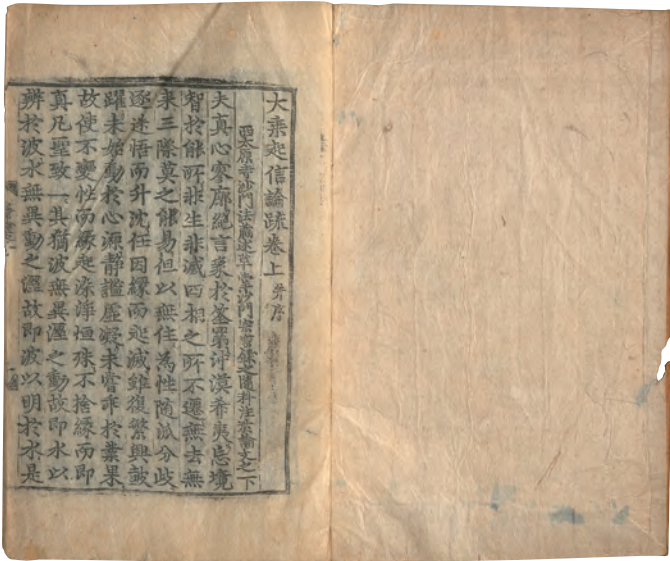 大乗起信論疏卷上 并序
西太原寺沙門法藏述 草堂寺沙門宗密録之隨科注於論文之下
夫真心寥廓絶言象於筌罤沖漠希夷忘境
智於能所非生非滅四相之所不遷無去無
来三際莫之能易但以無住為性隨派分歧
逐迷悟而升沈任因縁而起滅雖復繁興鼓
躍未始動於心源靜謐虚凝未嘗乖於業果
故使不變性而縁起染淨恒殊不捨縁而即
真凡聖致一其猶波無異濕之動故即水以
辨於波水無異動之濕故即波以明於水是